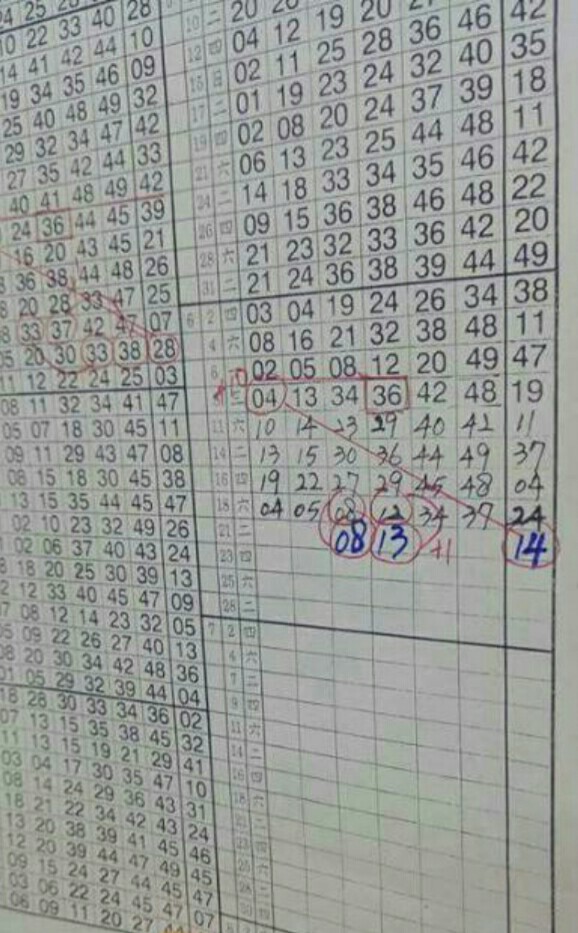 24 25 28
10 22 33 40 28
14 41 42 44 10
19 34 35 46 09
25 40 48 49 32
29 32 34 47 42
27 35 42 44 33
40 41 48 49 42
24 36 44 45 39
16 20 43 45 21
36 38 44 48 26
20 28 33 47 25
33 37 42 47 07
05 20 30 33 38 28
11 12 22 24 25 03
08 11 32 34 41 47
05 07 18 30 45 11
09 11 29 43 47 08
08 15 18 30 45 38
13 15 35 44 45 47
02 10 23 32 49 26
02 06 37 40 43 24
18 20 25 30 39 13
12 33 40 45 47 09
07 08 12 14 23 32 05
05 09 22 26 27 40 13
08 20 30 34 42 48 36
01 05 29 32 39 44 04
18 28 30 33 34 36 02
07 13 15 35 38 45 32
11 13 15 19 21 29 41
03 04 17 30 35 47 10
08 14 24 29 36 43 31
18 21 22 34 42 43 24
13 20 38 39 41 45 46
12 20 39 44 47 49 45
09 15 24 27 44 45 47
03 06 22 24 45 47 07
06 09 11 20 27
10 二 20 20 19 20 42
12 四 04 12 19 20 36 46 42
15 日 02 11 25 28 32 40 35
17 二 01 19 23 24 37 39 18
19 四 02 08 20 24 44 48 11
21 六 06 13 23 25 35 46 42
24 二 14 18 33 34 46 48 22
26 四 09 15 36 38 36 42 20
28 六 21 23 32 33 39 44 49
31 二 21 24 36 38
6 2 四 03 04 19 24 26 34 38
4 六 08 16 21 32 38 48 11
02 05 08 12 20 49 47
04 13 34 36 42 48 19
11 六 10 14 23 29 40 42 11
14 二 13 15 30 36 44 49 37
16 四 19 22 27 29 45 48 04
18 六 04 05 08 12 34 37 24
21 二 08 13 +1 14
23 四
25 六
28 二
7 2 四
4 六
7 二
9 四
11 六
14 二
16 四
18 六